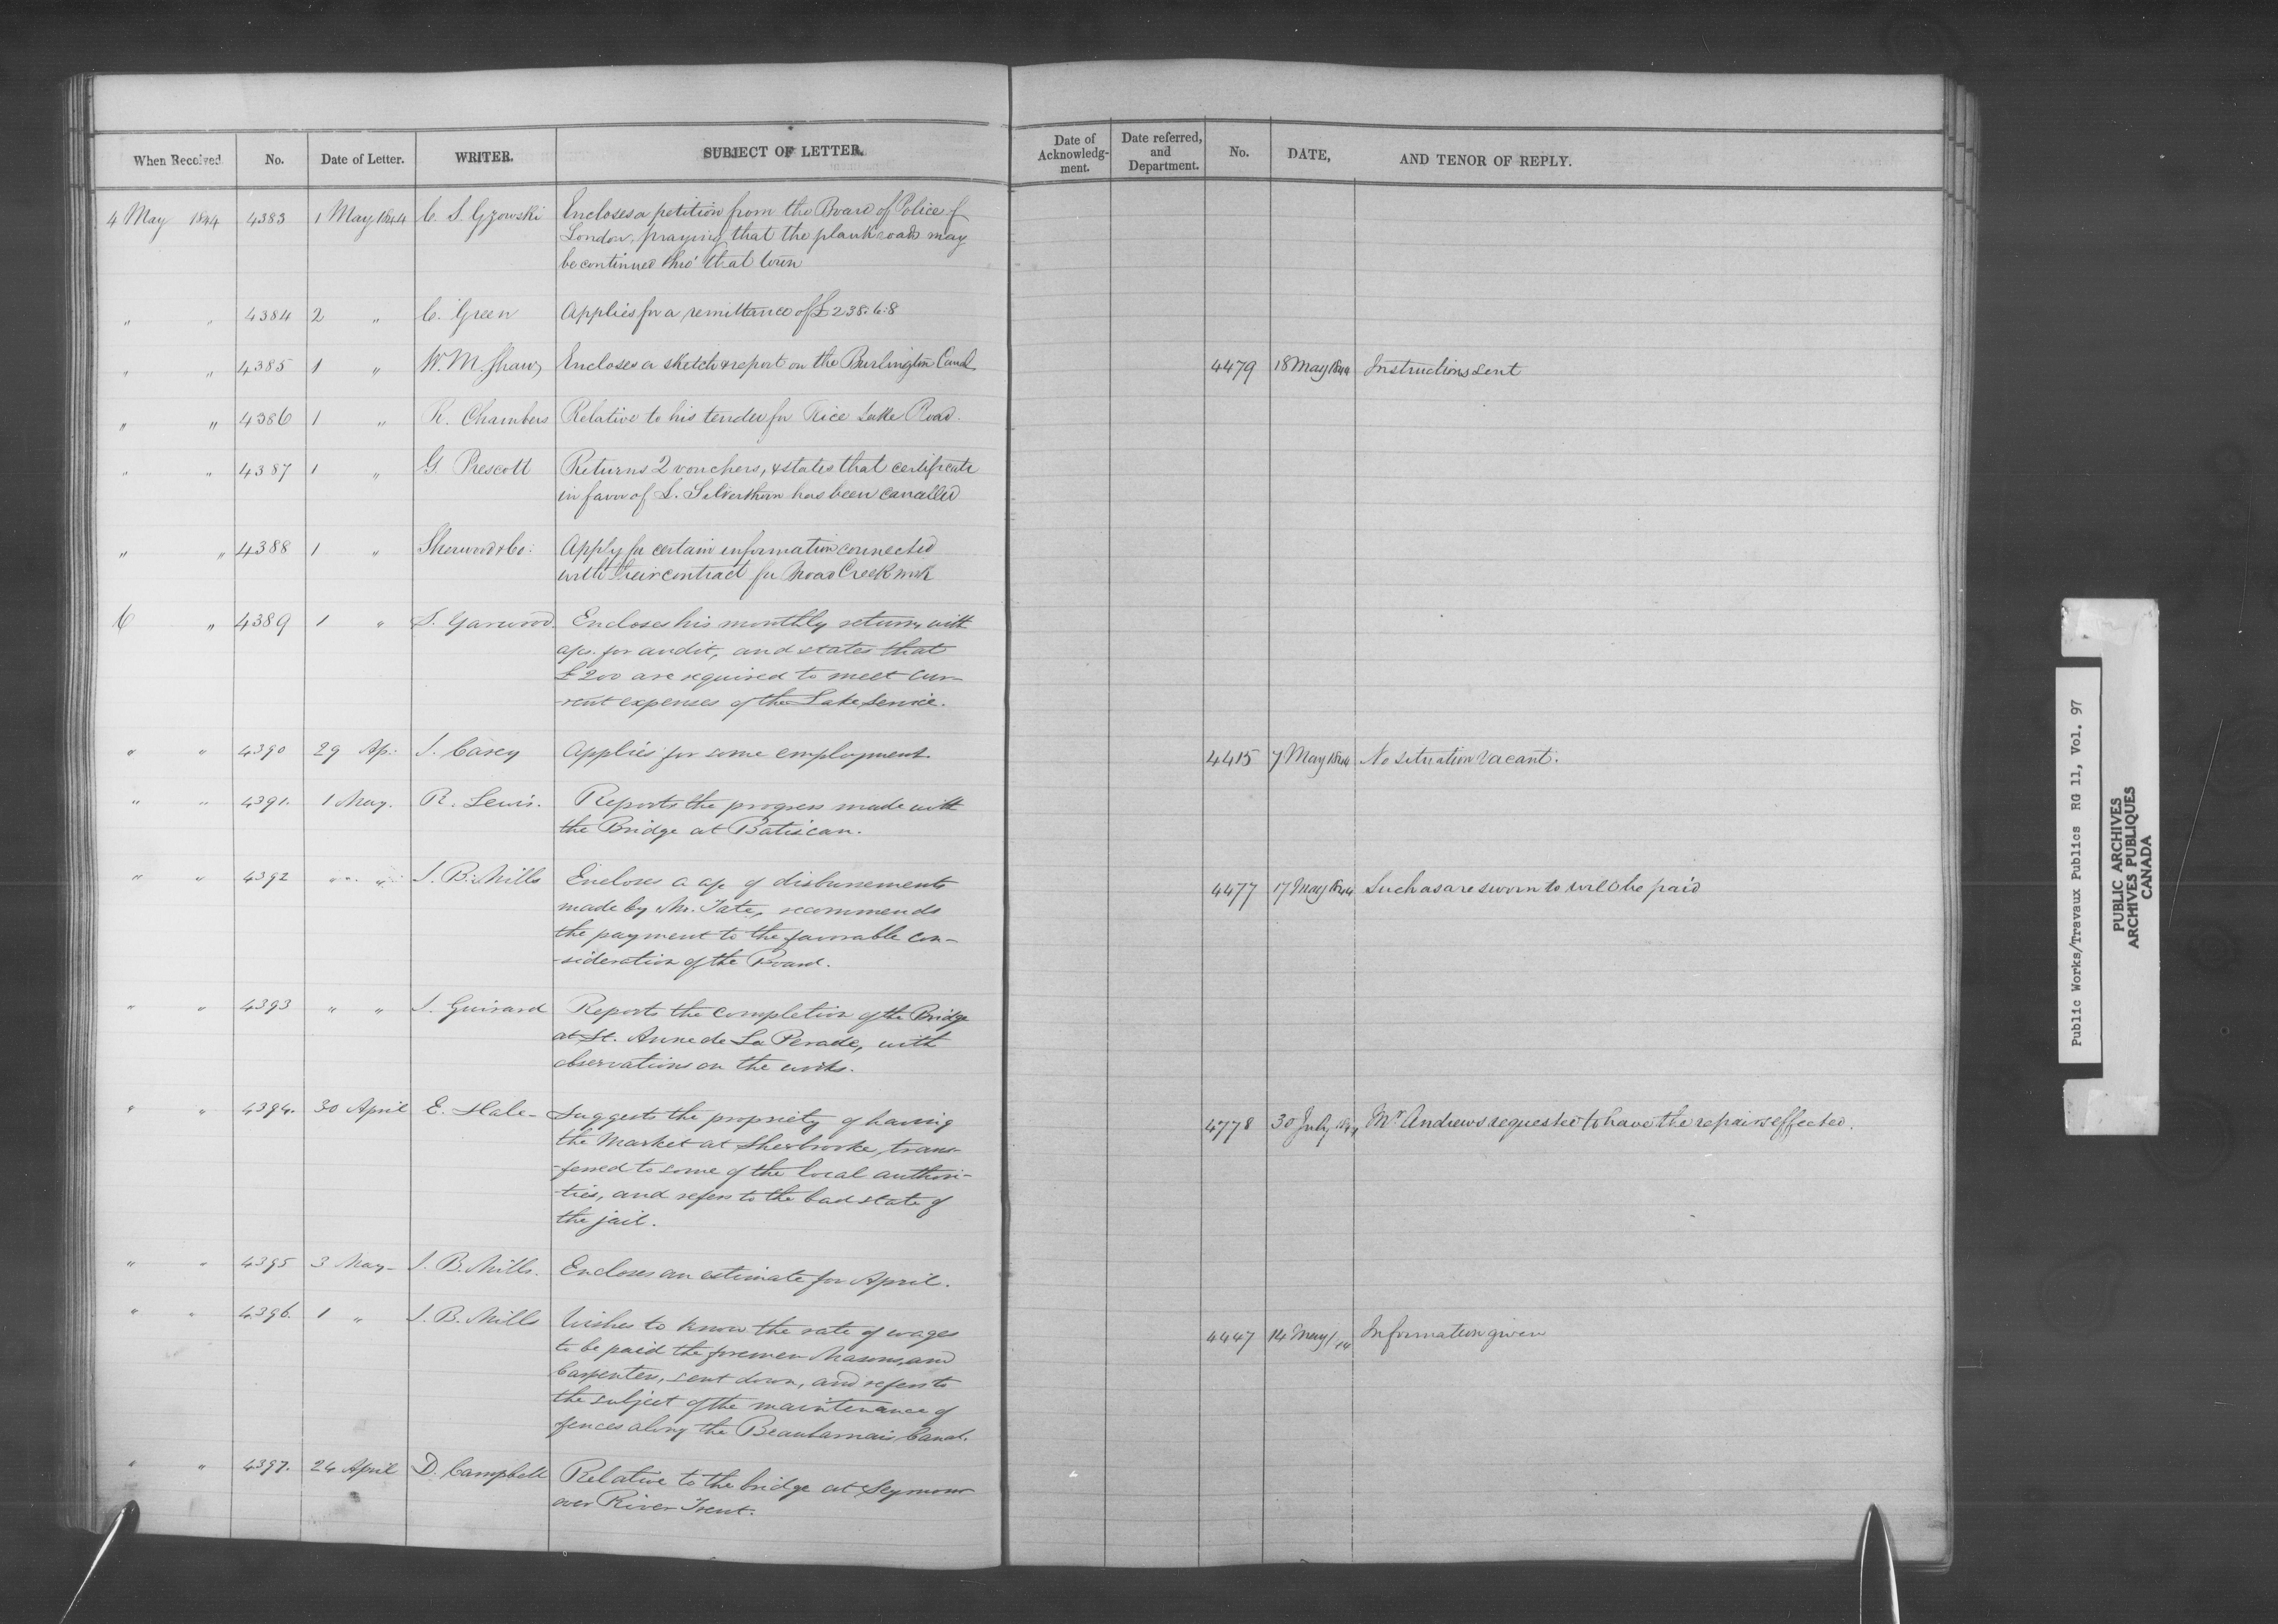 When Received No. Date of Letter. WRITER. SUBJECT OF LETTER.
Date of Acknowledg-ment. Date referred, and Department. No. DATE, AND TENOR OF REPLY.
4 May 1844 4383 1 May 1844 C. S. Gzowski Encloses a petition from the Board of Police of
London, praying that the plank road may
be continued thro' that town
" " 4384 2 " C. Green Applies for a remittance of £238.6.8
" " 4385 1 " W. M. Shaw Encloses a sketch & report on the Burlington Canal 4479 18 May 1844 Instructions sent
" " 4386 1 " R. Chambers Relative to his tender for Rice Lake Road.
" " 4387 1 " G Prescott Returns 2 vouchers, & states that certificate
in favor of L. Silverthorn has been cancelled
" " 4388 1 " Sherwood & Co: Apply for certain information connected
with their contract for Creek work
6 " 4389 1 " S. Garwood Encloses his monthly returns with
aps. for audit, and states that
£200 are required to meet cur-
-rent expenses of the Lake Service.
" " 4390 29 Ap: J. Carey Applies for some employment. 4415 7 May 1844 No situation vacant.
" " 4391. 1 May. R. Lewis. Reports the progress made with
the Bridge at Batiscan.
" " 4392 " " J. B. Mills Encloses a ap of disbursements 4477 17 May 1844 Such as are sworn to will be paid
made by Mr. Tate, recommends
the payment to the favorable con-
-sideration of the Board.
" " 4393 " " J. Guirard Reports the completion of the Bridge
at St. Anne de La Perade, with
observations on the works.
" " 4394. 30 April E. Hale - Suggests the propriety of having 4778 30 July 1844 Mr Andrews requested to have the repairs effected.
the Market at Sherbrooke, trans-
-ferred to some of the local authori-
-ties, and refers to the bad state of
the jail.
" " 4395 3 May - J. B. Mills. Encloses an estimate for April.
" " 4396. 1 " J. B. Mills Wishes to know the rate of wages 4447 14 May /44 Information given
to be paid the foremen Masons, and
Carpenters, sent down, and refers to
the subject of the maintenance of
fences along the Beauharnais Canal.
" " 4397. 24 April D. Campbell Relative to the bridge at Seymour
over River Trent.
Public Works/Travaux Publics RG 11, Vol. 97
PUBLIC ARCHIVES
ARCHIVES PUBLIQUES
CANADA